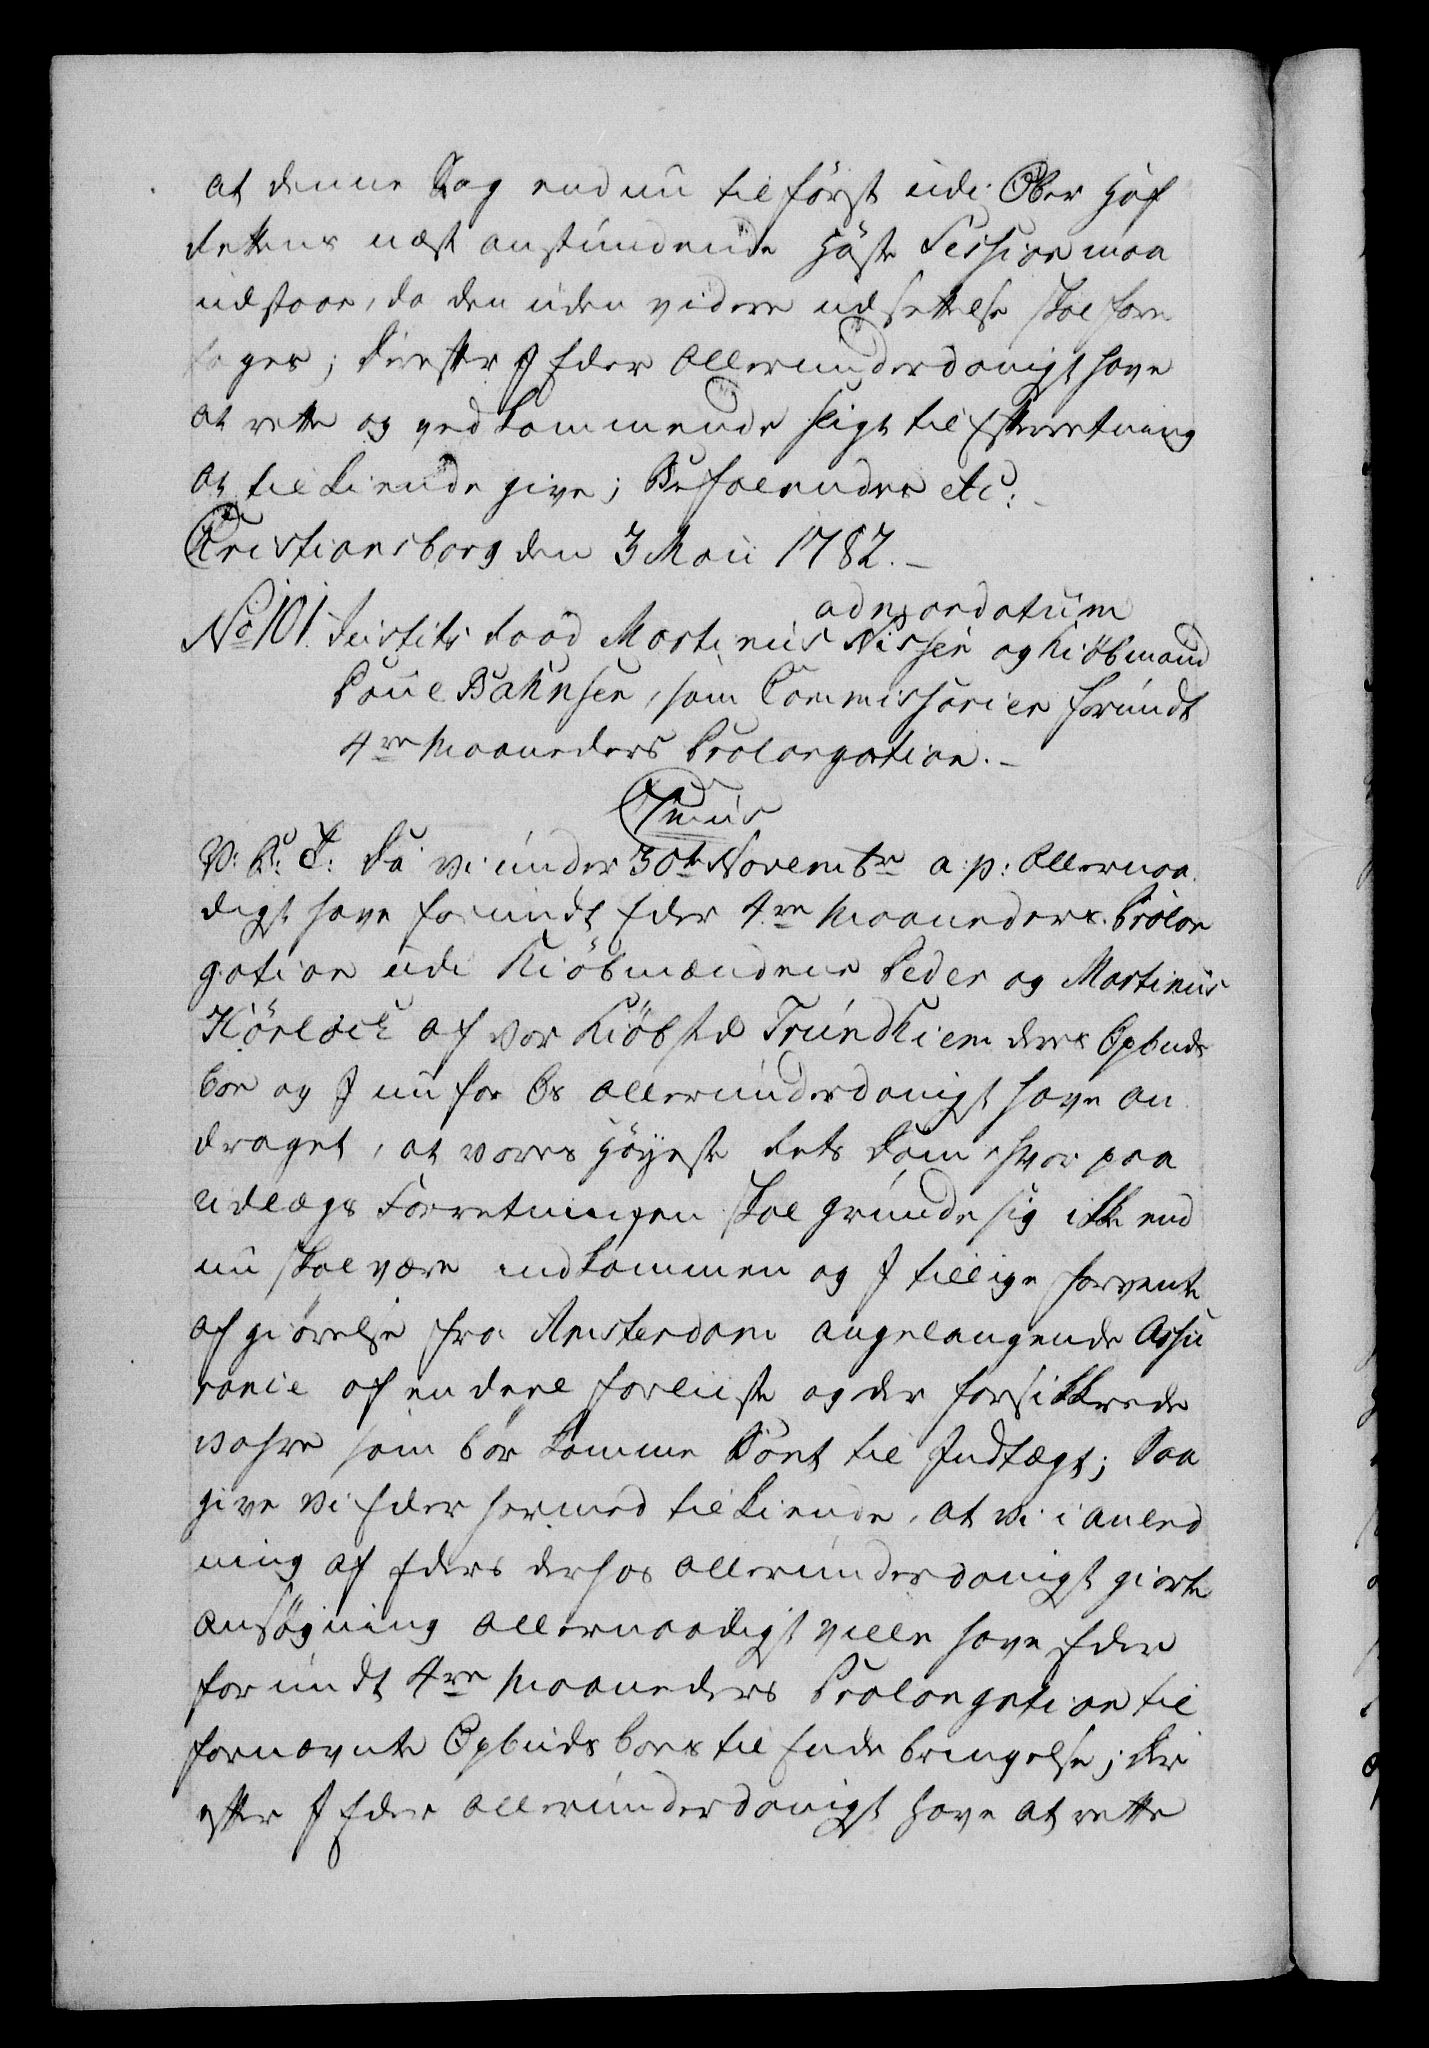 at denne Sag endnu til först udi Ober Hof
Rettens næst anstundende Höst Session maa
udstaae, da den uden videre udsettelse skal fore
tages; Derefter I Eder allerunderdanigst have
at rette og vedkommende sligt til Efterretning
at tilkiende give; Befalendes etc:
Christiansborg den 3 Maii 1782.
ad mandatum
No 101. Justits Raad Martinus Nissen og Kiöbmand
Poul Bahnsen, som Commissarier forundt
4re Maaneders Prolongation.
V: G: T: Da vi under 30te Novembr a: p: allernaa
digst have forundt Eder 4re Maaneders Prolon
gation udi Kiöbmændene Peder og Martinus
Hörlöck af vor Kiöbsted Trundhiem deres Opbuds
boe og I nu for Os allerunderdanigst have an
draget, at vores Höyeste Rets Dom hvor paa
udlægs Forretningen skal grunde sig ikke end
nu skal være indkommen og I tillige forvente
afgiörelse fra Amsterdam angelangende Assu
rance af en deel forliste og der forsikkrede
vahre som bör komme Boet til Indtægt; Saa
give vi Eder hermed tilkiende, at vi i anled
ning af Eders derhos allerunderdanigst giorte
ansögning allernaadigst ville have Eder
forundt 4re Maaneders Prolongation til
fornævnte Opbuds boes til Ende bringelse; der
efter I Eder allerunderdanigst have at rette